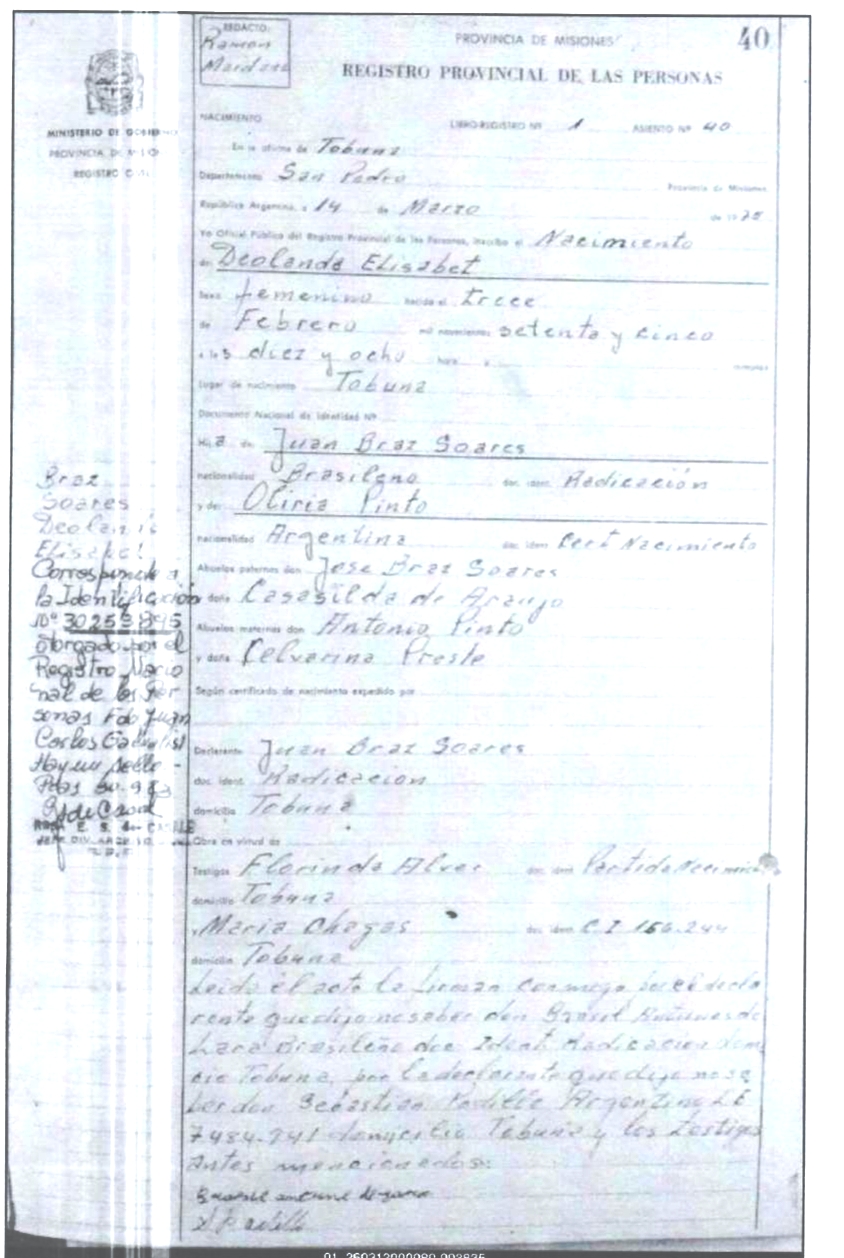 REDACTO:
Ramon
PROVINCIA DE MISIONES
40
REGISTRO PROVINCIAL DE LAS PERSONAS
MINISTERIO DE GOBIERNO
PROVINCIA DE MISIONES
REGISTRO CIVIL
NACIMIENTO
LIBRO-REGISTRO Nº 1 ASIENTO Nº 40
En la oficina de Tobuna
Departamento San Pedro Provincia de Misiones
República Argentina, a 14 de Marzo de 1975
Yo Oficial Público del Registro Provincial de las Personas, inscribo el Nacimiento
de Deolanda Elisabet
Sexo femenino nacido el trece
de Febrero mil novecientos setenta y cinco
a las diez y ocho hora y minutos
Lugar de nacimiento Tobuna
Documento Nacional de Identidad Nº
Hija de Juan Braz Soares
nacionalidad Brasileno doc. ident. Radicación
y de: Oliria Pinto
nacionalidad Argentina doc. ident. Cert Nacimiento
Abuelos paternos don Jose Braz Soares
y doña Casasilda de Araujo
Abuelos maternos don Antonio Pinto
y doña Celvarina Preste
Según certificado de nacimiento expedido por
Declarante Juan Braz Soares
doc. ident. Radicacion
domicilio Tobuna
Obra en virtud de
Testigos Florinda Alves doc. ident. Partida Nacimien
domicilio Tobuna
y Maria Chagas doc. ident. C.I 156.244
domicilio Tobuna
Leida el acta la firman conmigo por el decla
rante que dijo no saber don Brasil
Lara Brasileño doc Ident Radicacion dom
cio Tobuna, por la declarante que dijo no sa
ber don Sebastian Argentino L E
7484.241 domicilio Tobuna y los testigos
antes mencionados:
Braz
Soares
Deolanda
Elisabet
Corresponde a
la Identificación
Nº 30253895
otorgado por el
Registro Nacio
nal de las Per
sonas Fdo Juan
Carlos
Hay un sello -
Pdas